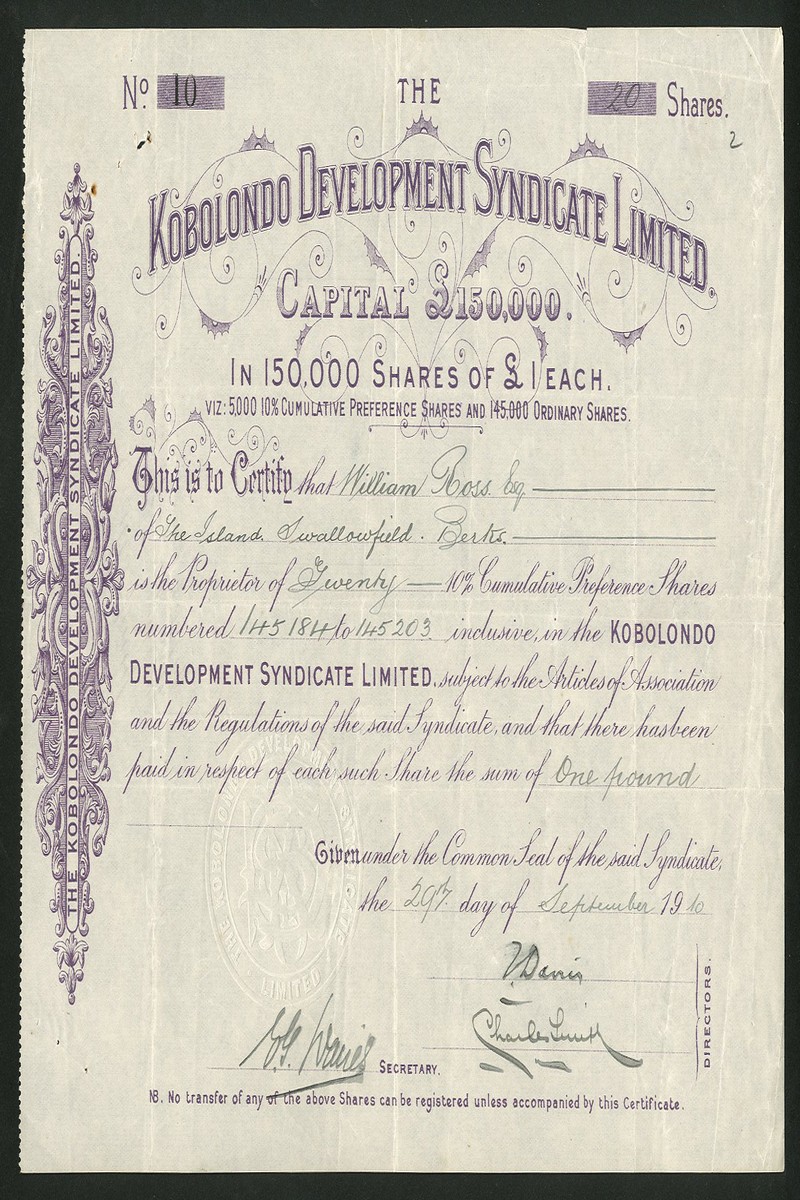 No. 10 THE 20 Shares.
2
KOBOLONDO DEVELOPMENT SYNDICATE LIMITED.
CAPITAL £150,000.
IN 150,000 SHARES OF £1 EACH.
VIZ: 5,000 10% CUMULATIVE PREFERENCE SHARES AND 145,000 ORDINARY SHARES.
This is to Certify that William Ross Esq.
of The Island. Swallowfield. Berks.
is the Proprietor of Twenty 10% Cumulative Preference Shares
numbered 145184 to 145203 inclusive, in the KOBOLONDO
DEVELOPMENT SYNDICATE LIMITED, subject to the Articles of Association
and the Regulations of the said Syndicate, and that there has been
paid in respect of each such Share the sum of One pound
Given under the Common Seal of the said Syndicate,
the 29th day of September 1910
Charles Smith
DIRECTORS.
SECRETARY.
NB. No transfer of any of the above Shares can be registered unless accompanied by this Certificate.
THE KOBOLONDO DEVELOPMENT SYNDICATE LIMITED.
THE KOBOLONDO DEVELOPMENT SYNDICATE
LIMITED